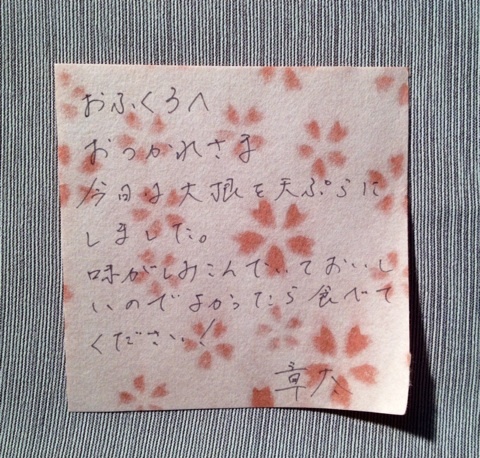 おふくろへ
おつかれさま
今日は大根を天ぷらに
しました。
味がしみこんでいておいし
いのでよかったら食べて
ください!
章大